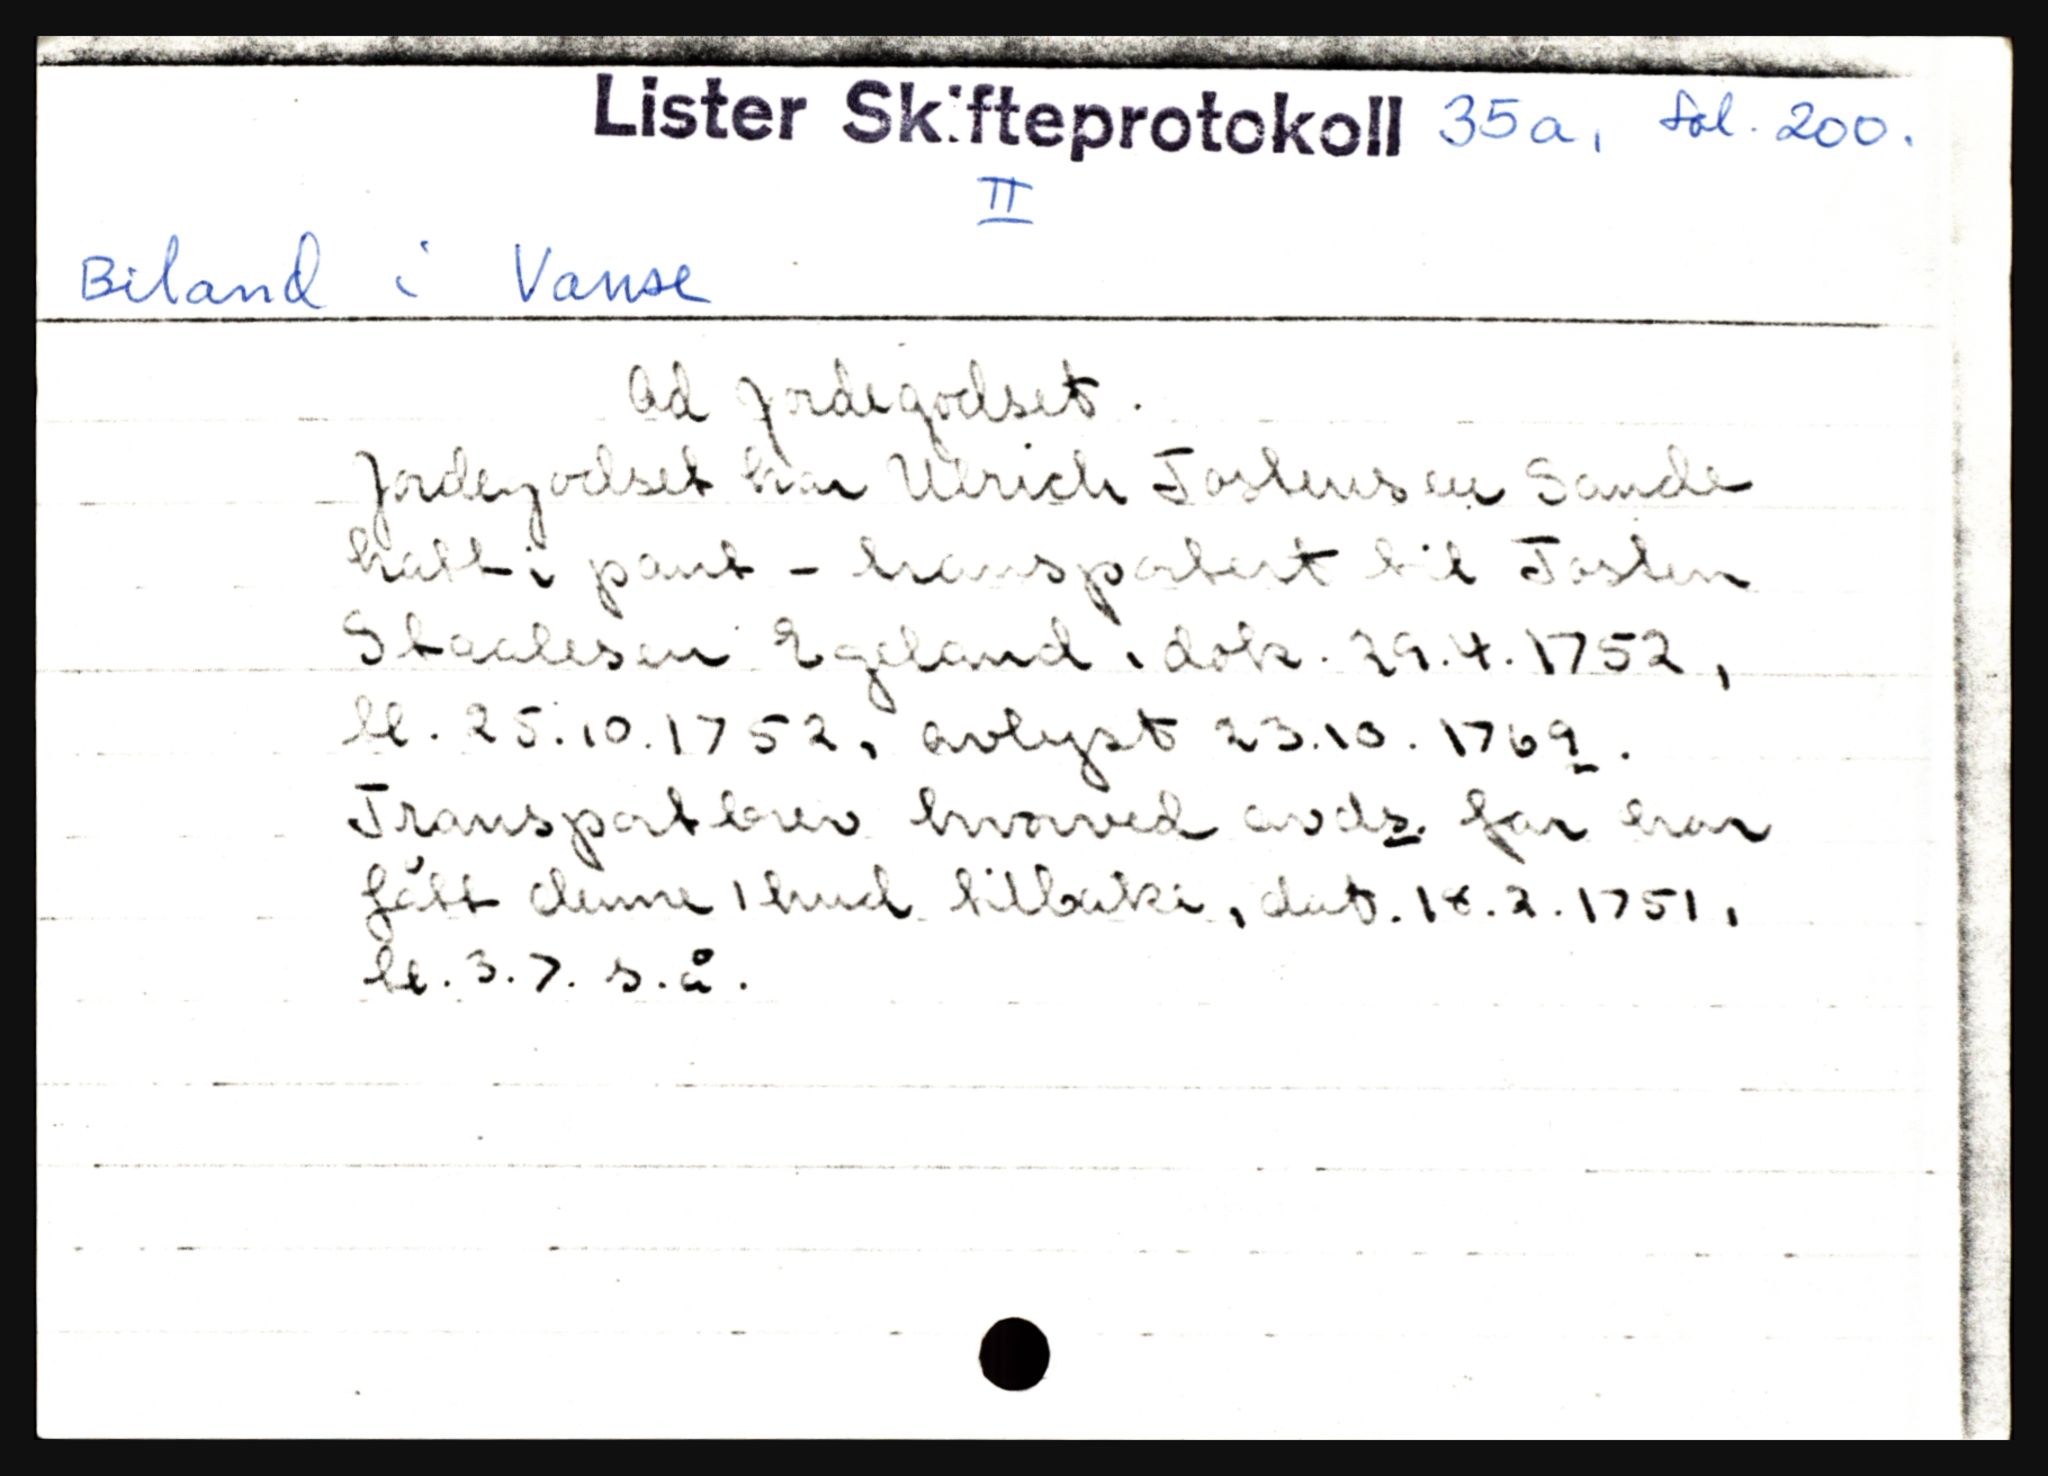 Lister Skifteprotokoll 35a, fol. 200.
II
Biland i Vanse
Ad Jordegodset.
Jordegodset har Ulrich Tostensen Sande
hatt i pant - transportert til Tosten
Staalesen Egeland, dok. 29.4.1752,
tl. 25.10.1752, avlyst 23.10.1769.
Transportbrev hvorved avds. far har
fått denne 1 hud tilbake, dat. 18.2.1751,
tl. 3.7. s.å.